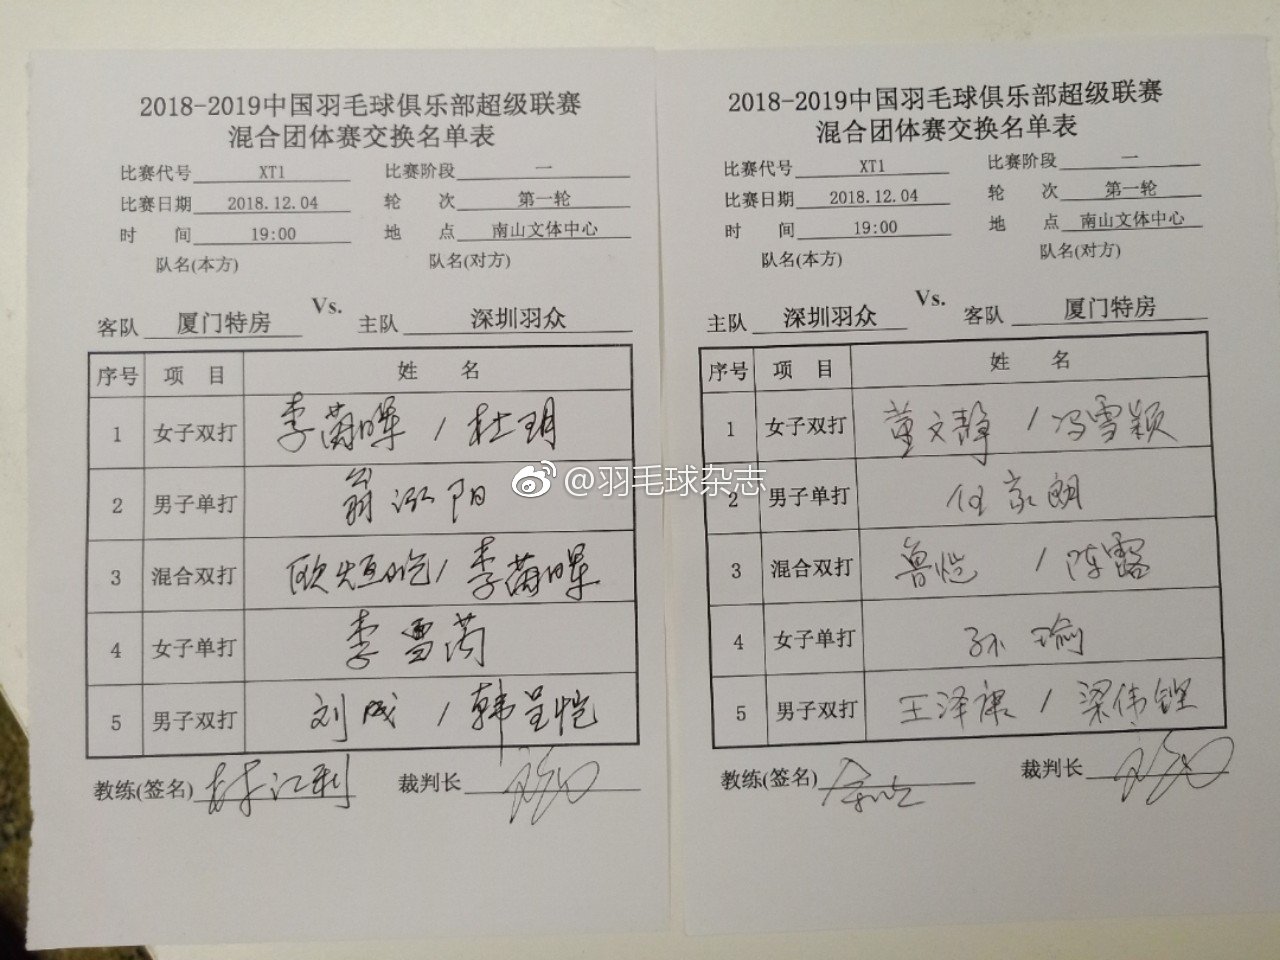 2018-2019中国羽毛球俱乐部超级联赛
混合团体赛交换名单表
比赛代号 XT1 比赛阶段 一
比赛日期 2018.12.04 轮 次 第一轮
时 间 19:00 地 点 南山文体中心
队名(本方) 队名(对方)
客队 厦门特房 Vs. 主队 深圳羽众
序号 项 目 姓 名
1 女子双打 李茵晖 / 杜玥
2 男子单打 翁泓阳
3 混合双打 欧烜屹 / 李茵晖
4 女子单打 李雪芮
5 男子双打 刘成 / 韩呈恺
教练(签名) 林江利 裁判长
2018-2019中国羽毛球俱乐部超级联赛
混合团体赛交换名单表
比赛代号 XT1 比赛阶段 一
比赛日期 2018.12.04 轮 次 第一轮
时 间 19:00 地 点 南山文体中心
队名(本方) 队名(对方)
主队 深圳羽众 Vs. 客队 厦门特房
序号 项 目 姓 名
1 女子双打 董文静 / 冯雪颖
2 男子单打 任家朗
3 混合双打 鲁恺 / 陈露
4 女子单打 孙瑜
5 男子双打 王泽康 / 梁伟铿
教练(签名) 裁判长
@羽毛球杂志